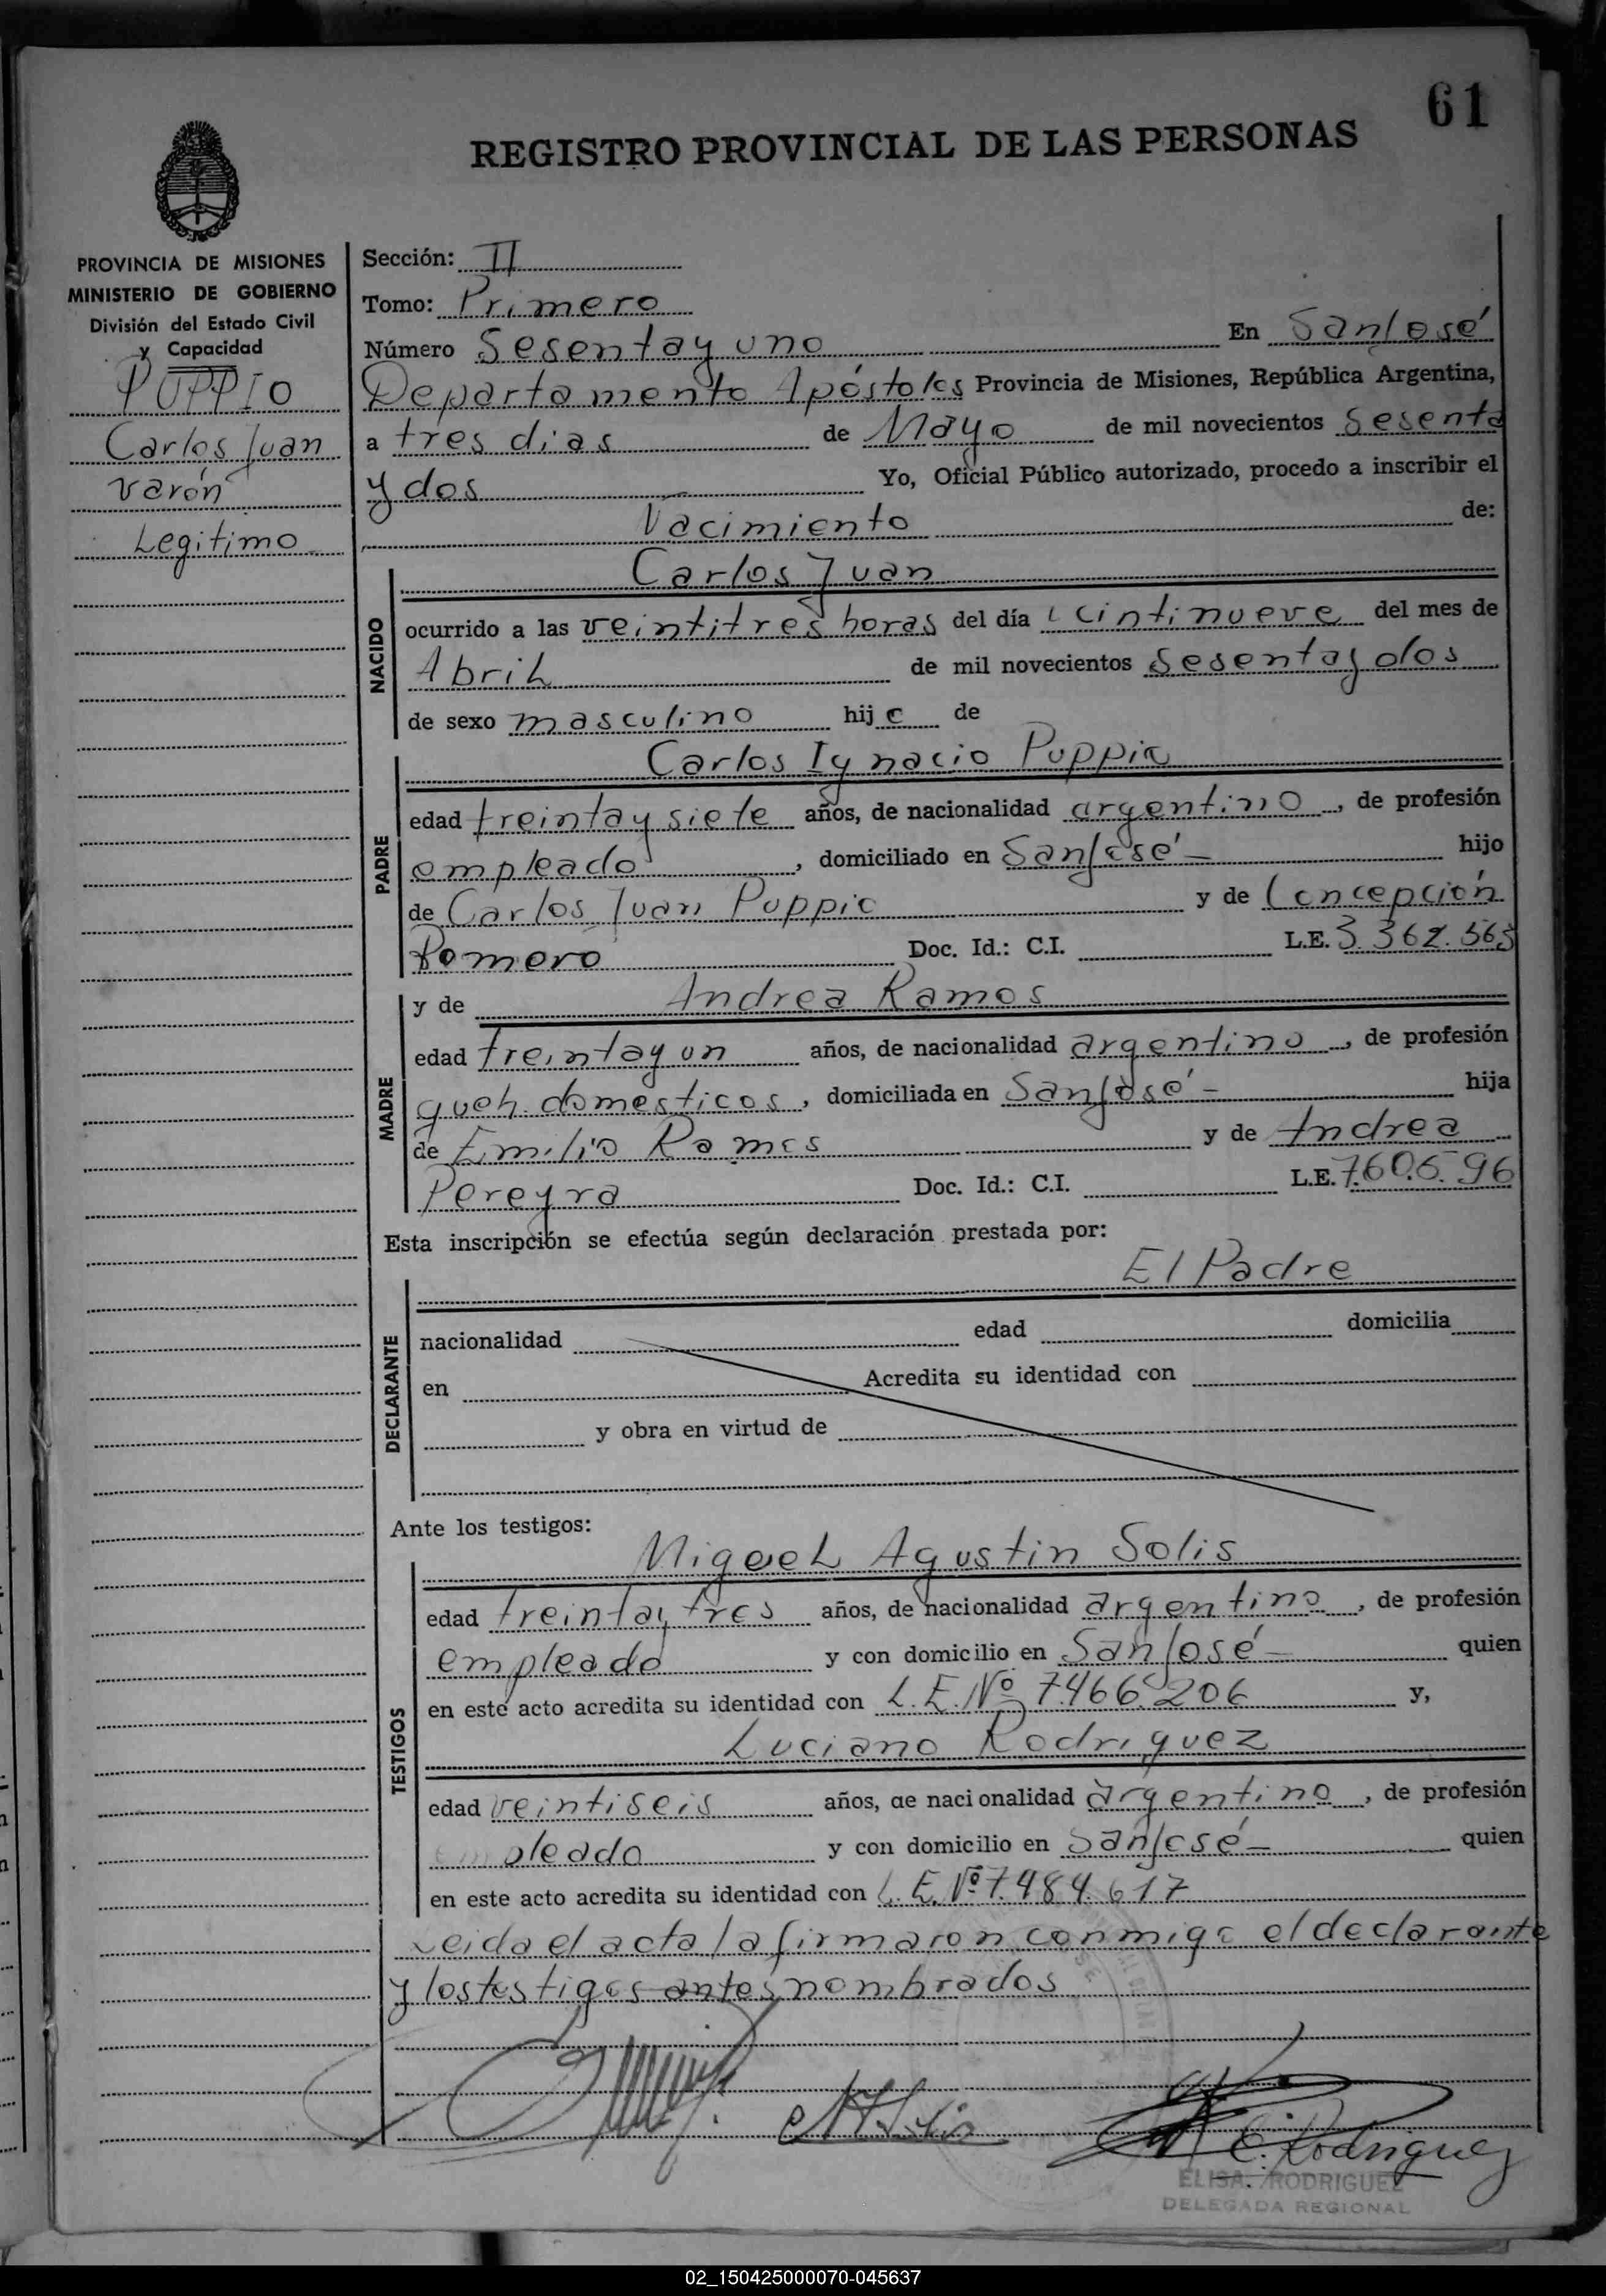 61
REGISTRO PROVINCIAL DE LAS PERSONAS
PROVINCIA DE MISIONES
MINISTERIO DE GOBIERNO
División del Estado Civil
y Capacidad
PUPPIO
Carlos Juan
varón
Legitimo
Sección: II
Tomo: Primero
Número Sesenta y uno En San José
Departamento Apóstoles Provincia de Misiones, República Argentina,
a tres dias de Mayo de mil novecientos Sesenta
y dos Yo, Oficial Público autorizado, procedo a inscribir el
Nacimiento de:
NACIDO
Carlos Juan
ocurrido a las veintitres horas del día veintinueve del mes de
Abril de mil novecientos Sesenta y dos
de sexo masculino hijo de
PADRE
Carlos Ignacio Puppio
edad treinta y siete años, de nacionalidad argentino, de profesión
empleado, domiciliado en San José - hijo
de Carlos Juan Puppio y de Concepción
Romero Doc. Id.: C.I. L.E. 3.362.565
MADRE
y de Andrea Ramos
edad treinta y un años, de nacionalidad argentino, de profesión
queh. domesticos, domiciliada en San José - hija
de Emilio Ramos y de Andrea
Pereyra Doc. Id.: C.I. L.E. 7.606.96
Esta inscripción se efectúa según declaración prestada por:
DECLARANTE
El Padre
nacionalidad edad domicilia
en Acredita su identidad con
y obra en virtud de
Ante los testigos:
TESTIGOS
Miguel Agustin Solis
edad treinta y tres años, de nacionalidad argentino, de profesión
empleado y con domicilio en San José - quien
en este acto acredita su identidad con L.E. Nº 7.466.206 y,
Luciano Rodriguez
edad veintiseis años, de nacionalidad argentino, de profesión
empleado y con domicilio en San José - quien
en este acto acredita su identidad con L.E. Nº 7.484.617
Leida el acta la firmaron conmigo el declarante
y los testigos antes nombrados
E. Rodriguez
ELISA. RODRIGUEZ
DELEGADA REGIONAL
02_150425000070-045637